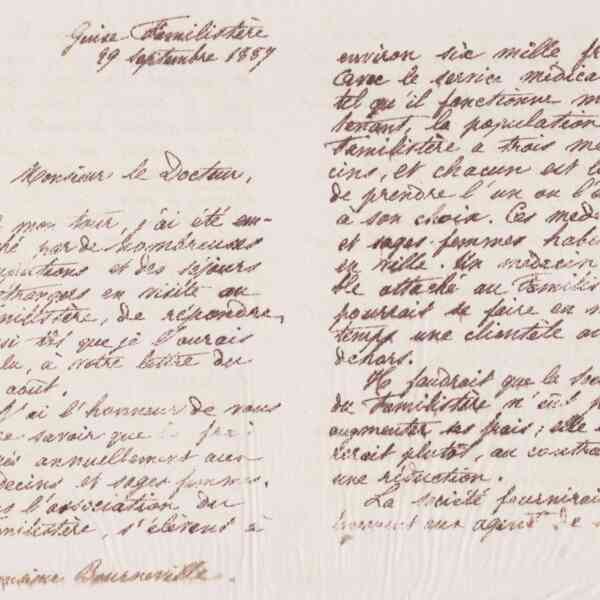 Guise Familistère
29 septembre 1887
Monsieur le Docteur,
mon tour, j'ai été em-
ché par de nombreuses
cupations et des séjours
étrangers en visite au
milistère, de répondre,
si tôt que je l'aurais
lu, à votre lettre du
août.
J'ai l'honneur de vous
re savoir que frais
annuellement aux
decins et sages femmes.
l'association du
milistère, s'élèvent à
Bourneville.
environ six mille fr
Avec le service médica
tel qu'il fonctionne m
tenant, la population
Familistère a trois mé
cins, et chacun est l
de prendre l'un ou l'a
à son choix. Ces méde
et sages-femmes habi
en ville. Un médecin
ble attaché au Familis
pourrait se faire en m
temps une clientèle au
dehors.
Il faudrait que la soc
du Familistère n'eût p
augmenter ses frais; elle
rerait plutôt, au contra
une réduction.
La société fournirai
aux agent de